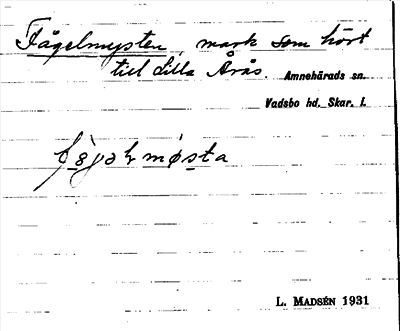 Fågelmysten, mark som hört
till Lilla Årås. Amnehärads sn.
Vadsbo hd., Skar. l.
L. MADSÉN 1931